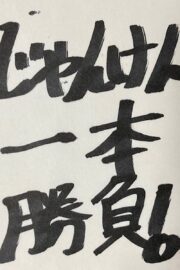 じゃんけん
一本
勝負!